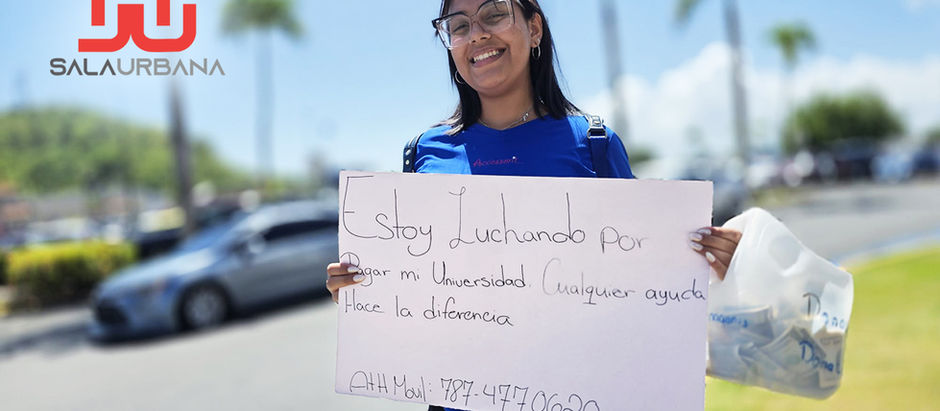 SALAURBANA
Accession.
Estoy Luchando por
Pagar mi Universidad. Cualquier ayuda
Hace la diferencia
ATH Movil: 787-477-0620
Dona